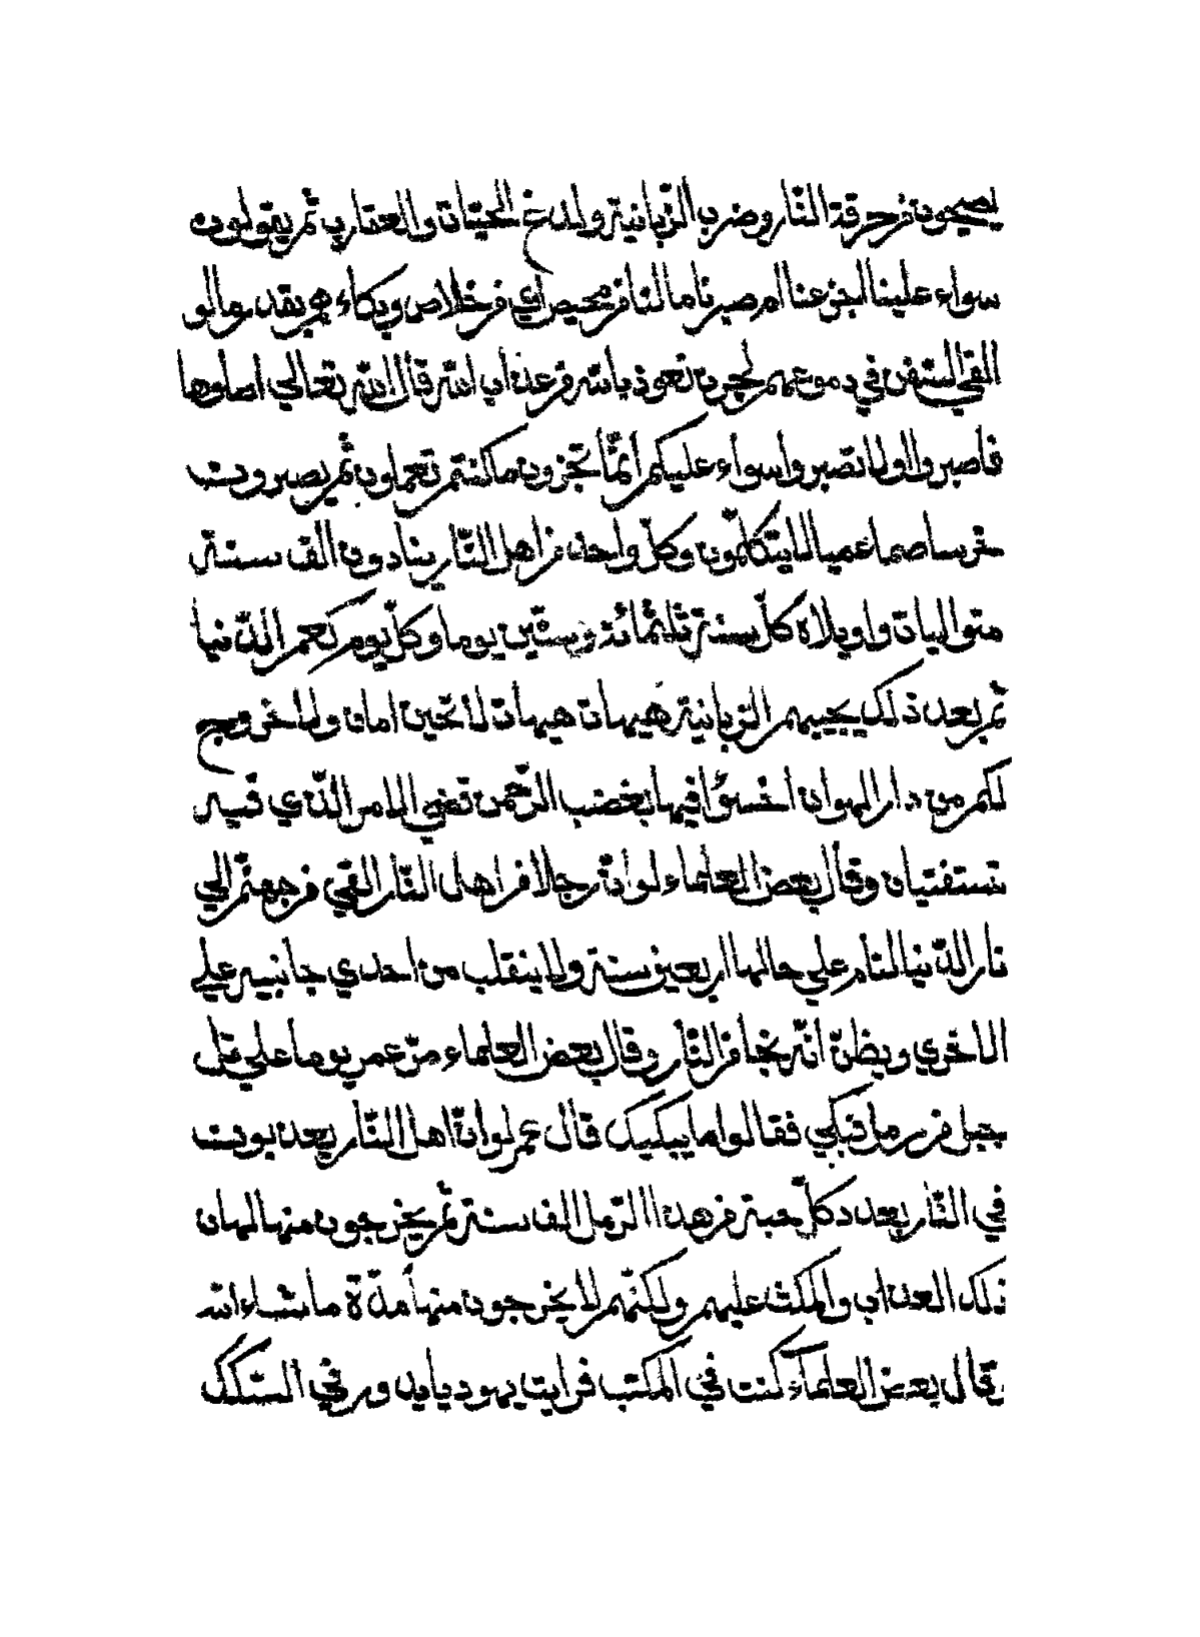 يصيحون من حرقة النّار وضرب الزّبانية ولدغ الحيّات والعقارب ثم يقولون
سواء علينا اجزعنا ام صبرنا ما لنا من محيص أي من خلاص وبكاء هم بقد رما لو
القي السّفن في دموعهم لجرت نعوذ بالله من عذاب الله قال الله تعالي اصلوها
فاصبروا اولا تصبروا سواء عليكم انّما تجزون ما كنتم تعملون ثم يصيرون
خرسا صما عميا لا يتكلّمون وكلّ واحد من اهل النّار ينادون الف سنة
متواليات واويلاه كلّ سنة ثلثمائة وستّين يوما وكلّ يوم كعمر الدّنيا
ثم بعد ذلك يجيبهم الزبانية هيهات هيهات لا تحين امان ولا خروج
لكم من دار الهوان اخسؤا فيها بغضب الرّحمن قضي الامر الّذي فيه
تستفتيان وقال بعض العلماء لو انّ رجالا من اهل النّار القي من جهنّم الي
نار الدّنيا لنام علي حالها اربعين سنة ولا ينقلب من احدي جانبيه علي
الاخري ويظنّ انّه نجا من النّار وقال بعض العلماء مرّ عمر يوما علي تل
جبل من رمل فبكي فقالوا ما يبكيك قال عمر لو انّ اهل النّار يعذبون
في النّار بعدد كلّ حبة من هذا الرّمل الف سنة ثم يخرجون منها لهان
ذلك العذاب والمكث عليهم ولكنّهم لا يخرجون منها مدّة ما شاء الله
قال بعض العلماء كنت في المكتب فرايت يهوديا يدور في السّكك